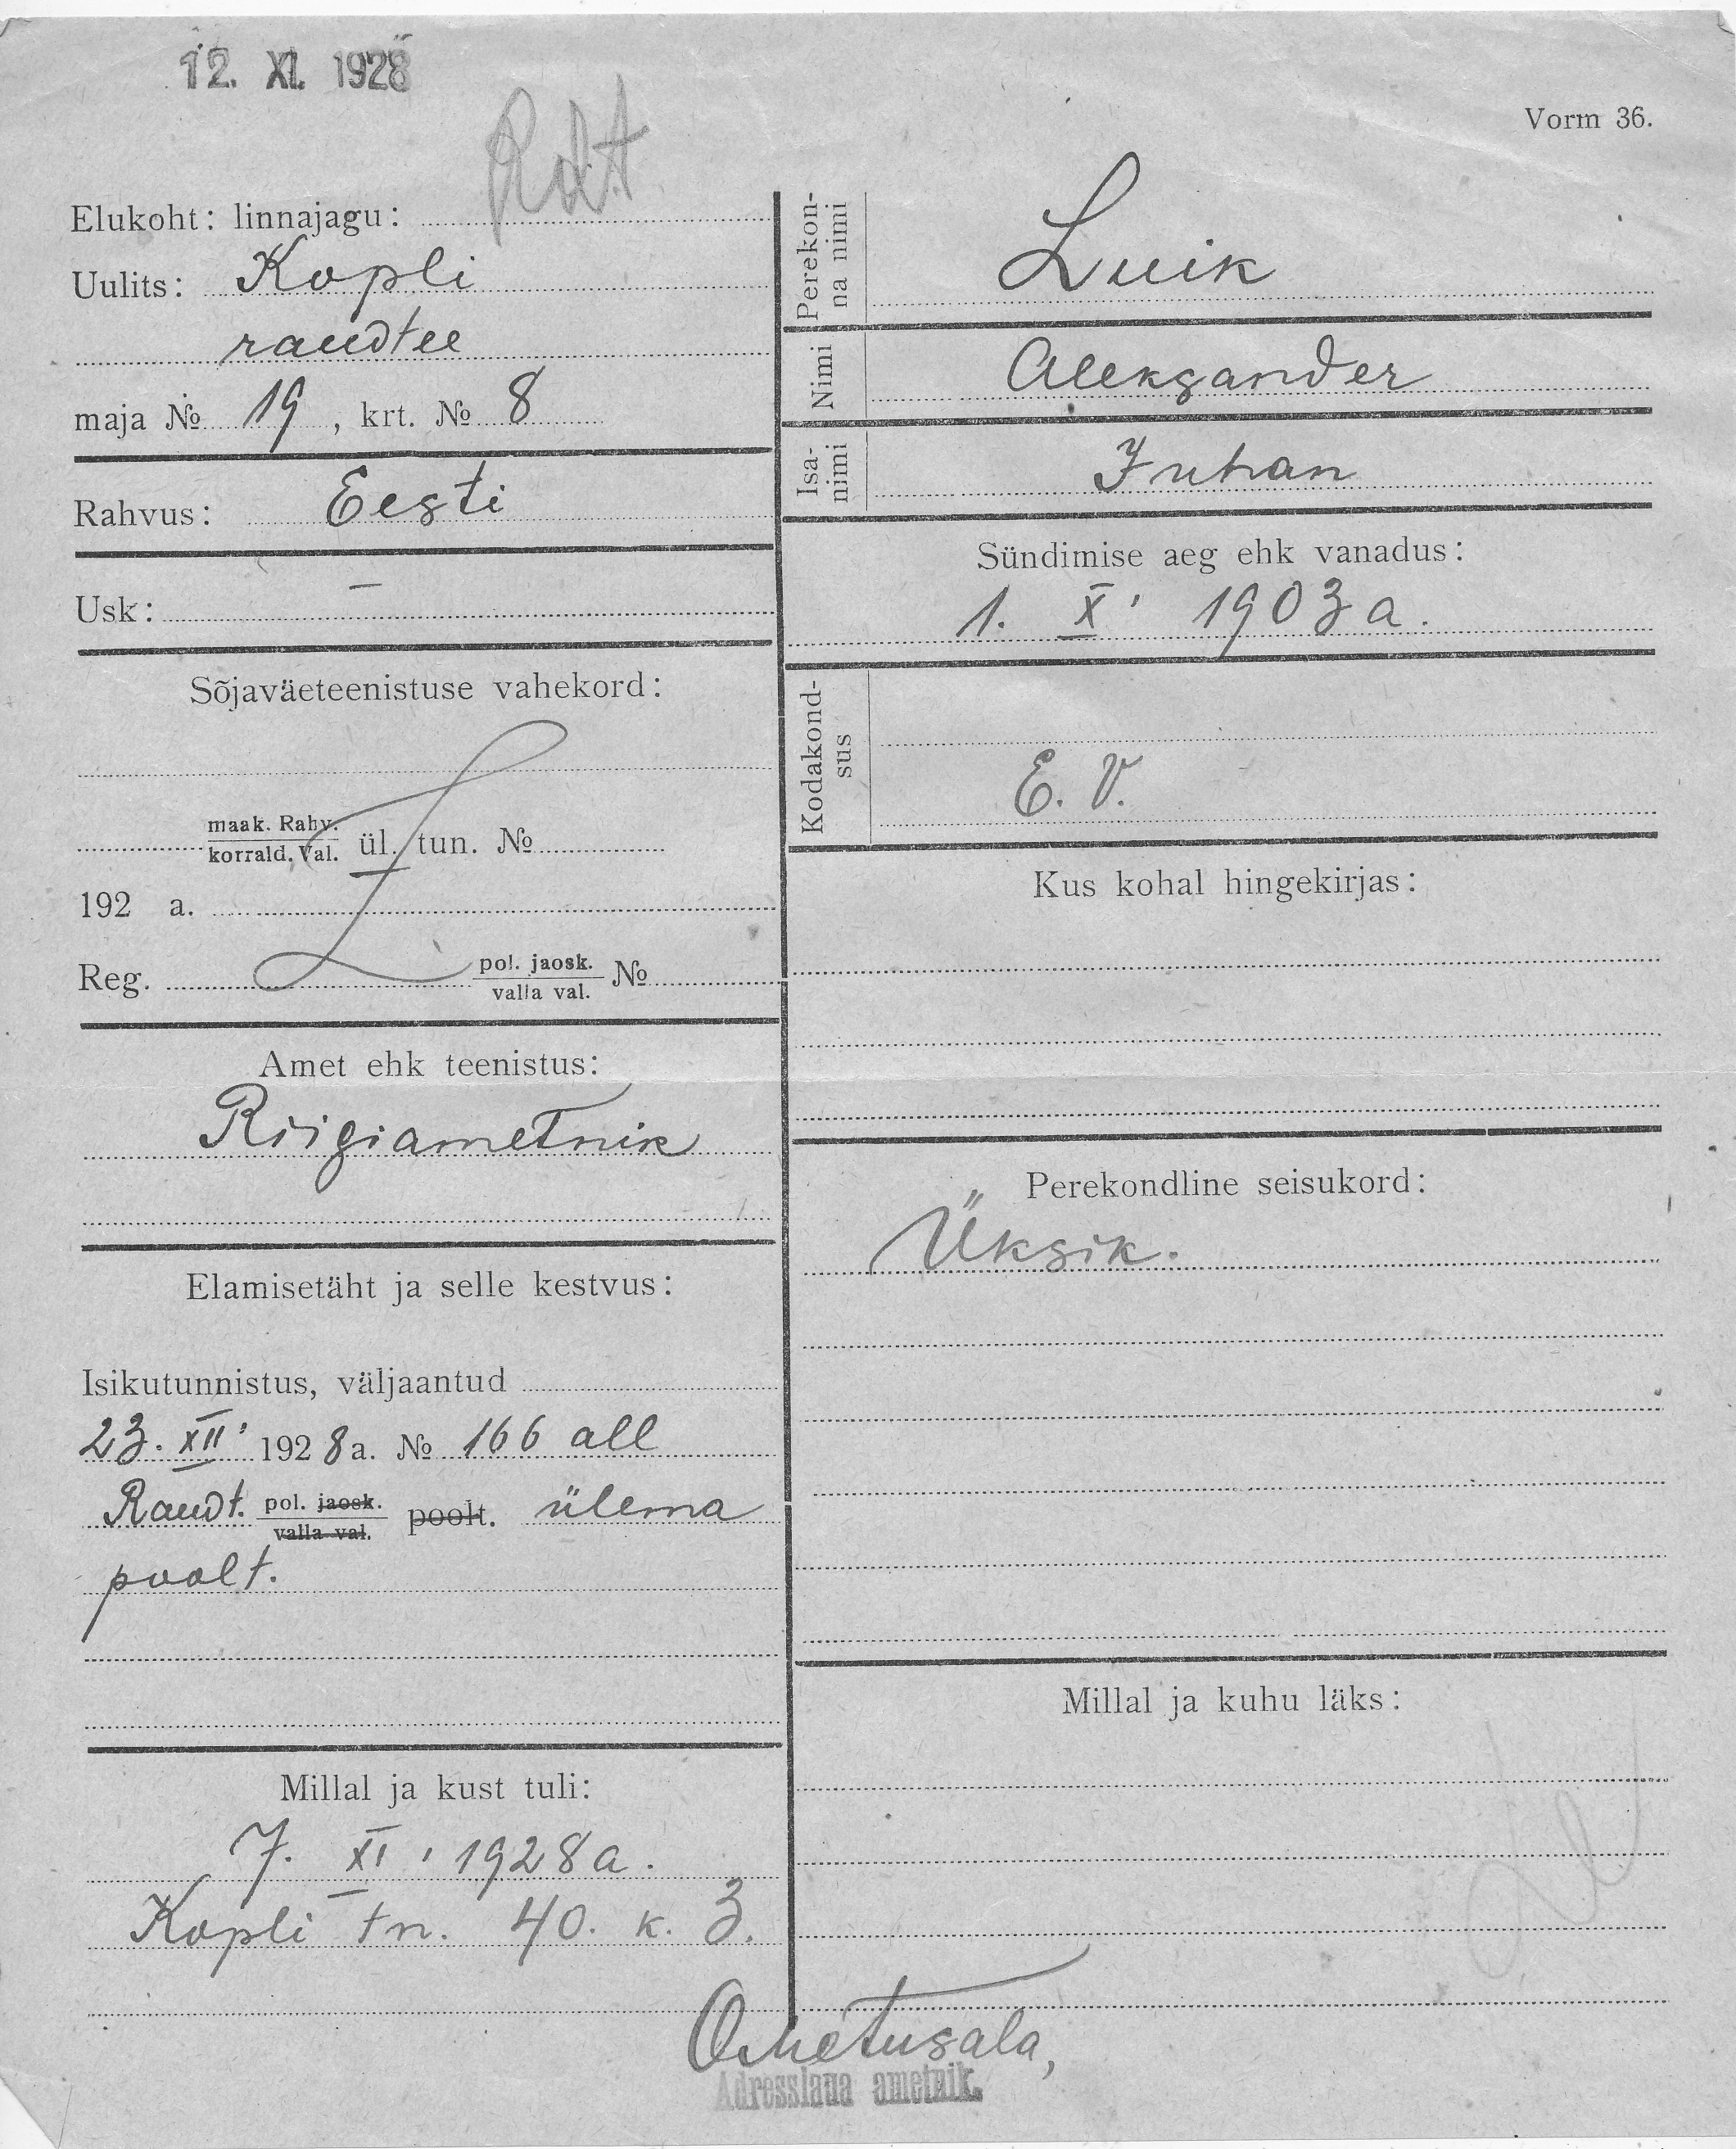 12. XI. 1928
Rdt
Vorm 36.
Elukoht: linnajagu:
Uulits: Kopli
raudtee
maja № 19, krt. № 8
Rahvus: Eesti
Usk: —
Sõjaväeteenistuse vahekord:
maak. Rahv.
korrald. Val. ül. tun. №
192 a.
Reg. pol. jaosk. №
valla val.
Amet ehk teenistus:
Riigiametnik
Elamisetäht ja selle kestvus:
Isikutunnistus, väljaantud
23. XII 1928 a. № 166 all
Raudt. pol. jaosk. poolt. ülema
valla val.
poolt.
Millal ja kust tuli:
7. XI 1928 a.
Kopli tn. 40. k. 3.
Perekon-
na nimi
Luik
Nimi
Aleksander
Isa-
nimi
Juhan
Sündimise aeg ehk vanadus:
1. X 1903 a.
Kodakond-
sus
E. V.
Kus kohal hingekirjas:
Perekondline seisukord:
Üksik.
Millal ja kuhu läks:
Adresslaua ametnik.